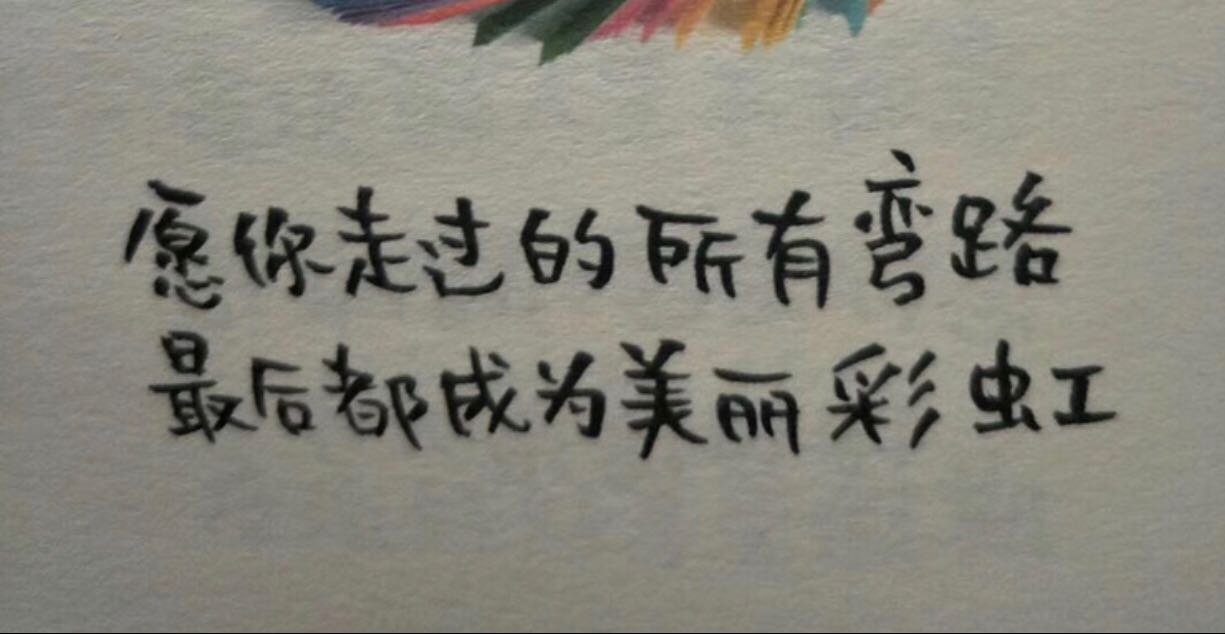 愿你走过的所有弯路
最后都成为美丽彩虹